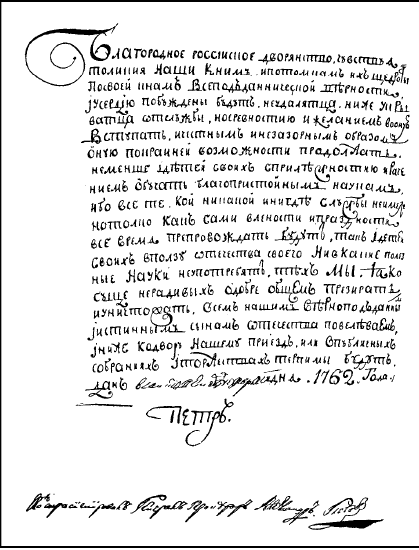 Благородное россииское дворянство, чувствуя
толикия наши кним, ипотомкам ихъ щедроты
Посвоей кнамъ всеподданнической вѣрности
јусердію побуждены будутъ, неудалятца, ниже укры
ватца отслужбы, носревностию ижеланиемъ воону
вступать, ичестнымъ инезазорнымъ образомъ
оную покрайней возможности продолжать,
неменше ідѣтей своихъ сприлѣжностию ираче
ниемъ обучать благопристойнымъ наукамъ,
ибо все те, кои никакой инигдѣ службы неимѣли
нотолко какъ сами влености ипраздности
все время препровождать будутъ, такъ ідѣтей
своихъ вползу отечества своего нивкакие полез
ные науки неупотребятъ, тѣхъ мы, яко
суще нерадивыхъ одобре общемъ презирать
иуничтожать, всемъ нашимъ вѣрноподданным
јистиннымъ сынамъ отечества повелѣваемъ,
јниже кодвору нашему приездъ, или впубличныхъ
собранияхъ іторжествахъ терпимы будутъ.
данъ 1762. Года.
Петръ.